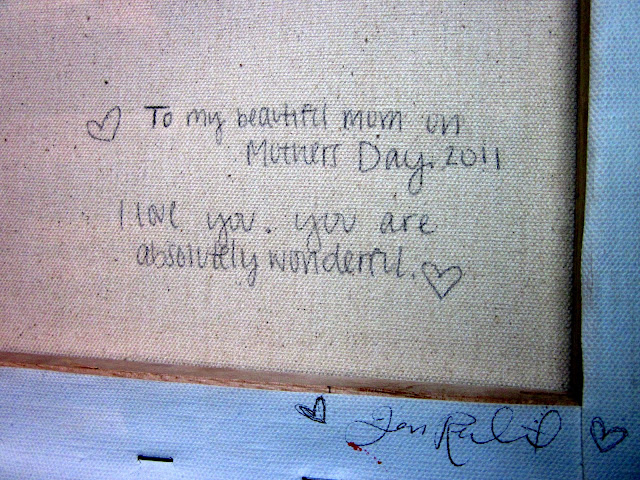 To my beautiful mom on
Mothers Day. 2011
I love you. you are
absolutely wonderful.
Jen